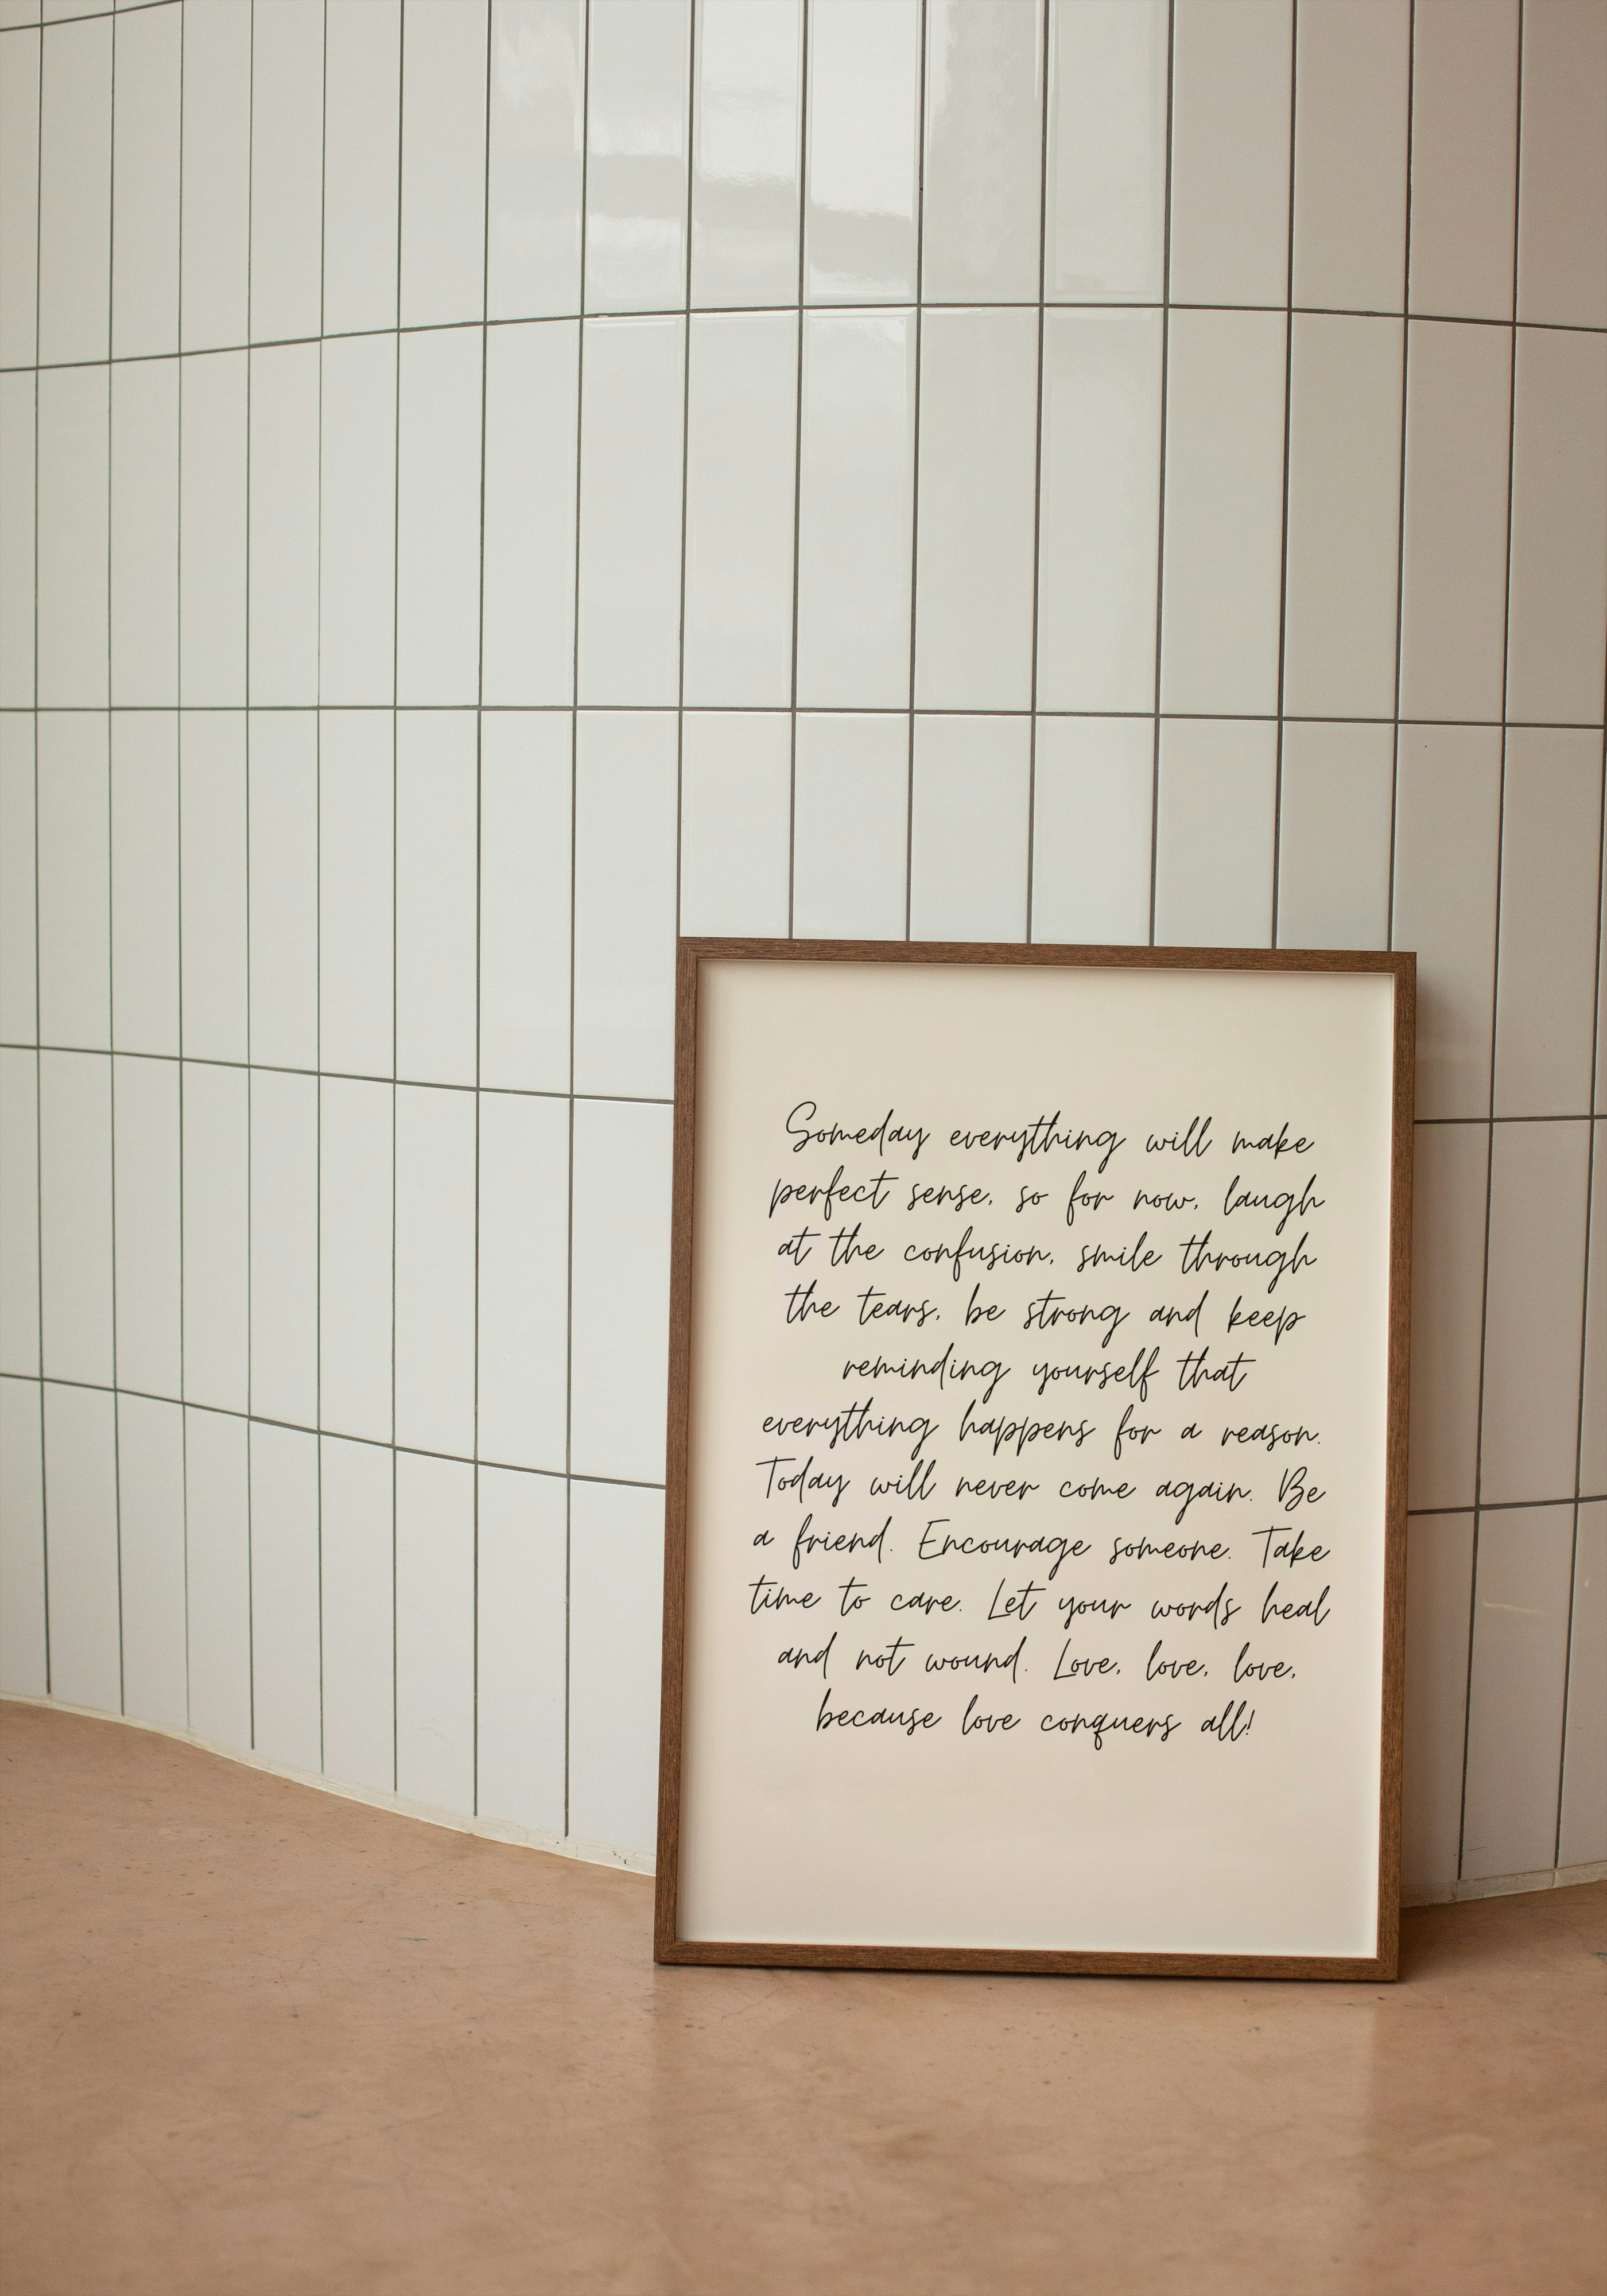 Someday everything will make
perfect sense, so for now, laugh
at the confusion, smile through
the tears, be strong and keep
reminding yourself that
everything happens for a reason.
Today will never come again. Be
a friend. Encourage someone. Take
time to care. Let your words heal
and not wound. Love, love, love,
because love conquers all!